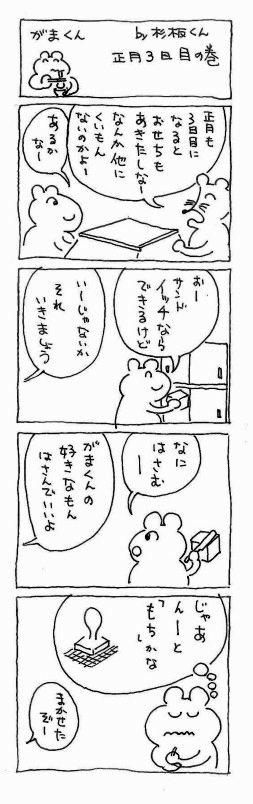 がまくん
by 杉板くん
正月3日目の巻
正月も
3日目に
なると
おせちも
あきたしなー
なんか他に
くいもん
ないのかよー
あるか
なー
おー
サンド
イッチなら
できるけど
いーじゃないか
それ
いきましょう
なに
はさむ
ー
がまくんの
好きなもん
はさんでいいよ
じゃあ
んーと
「もちかな」
まかせた
ぞー